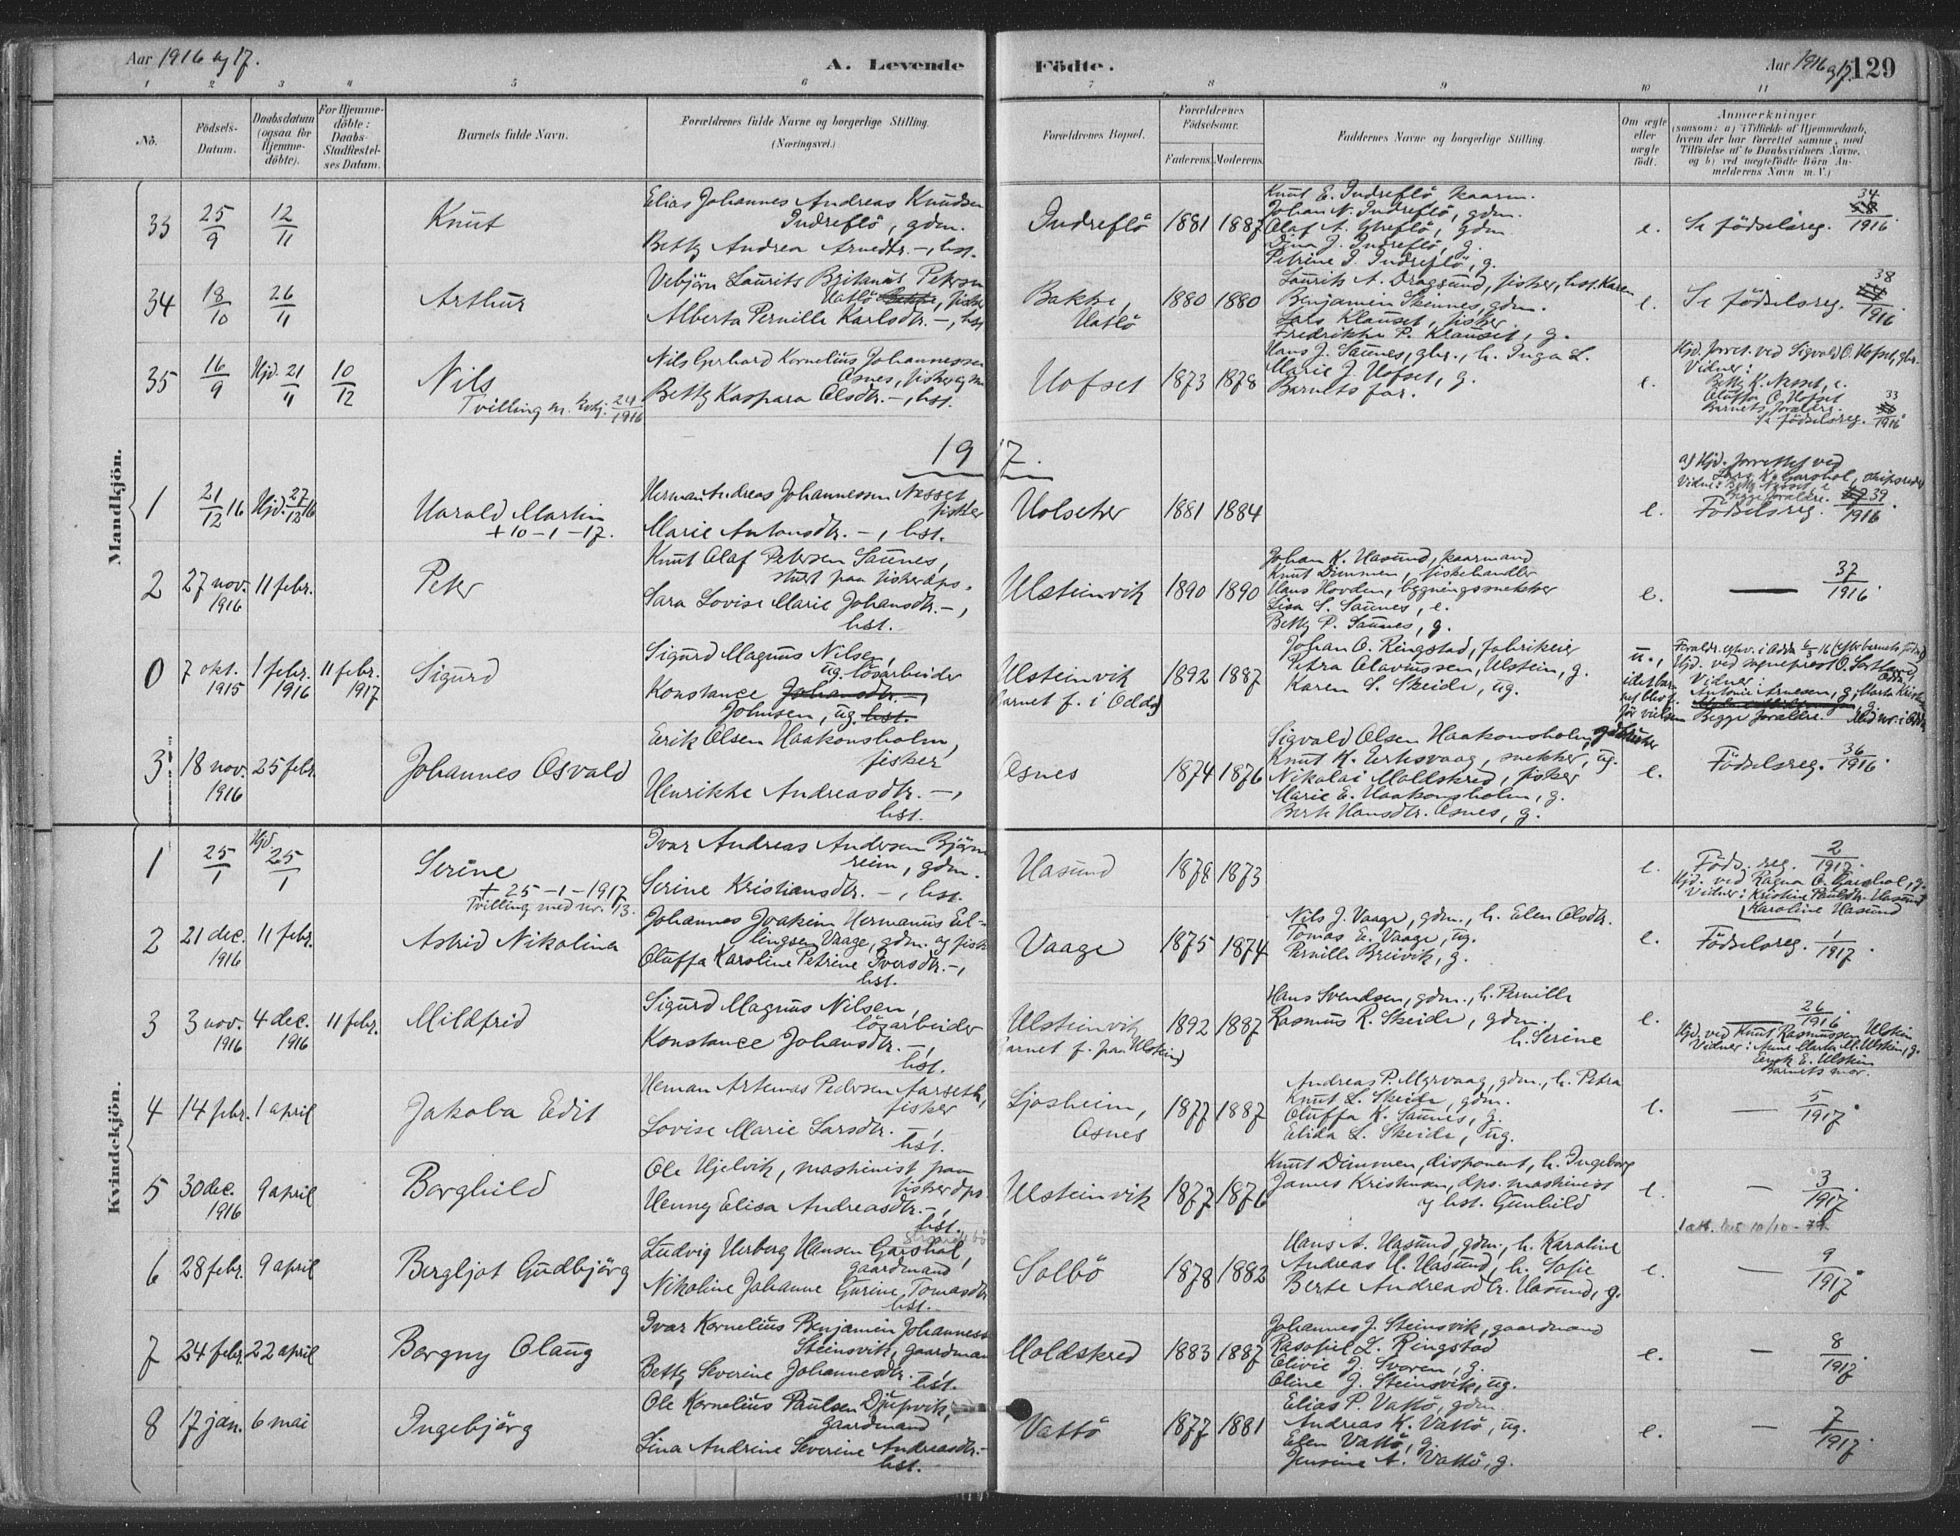 Aar 1916 og 17.
A. Levende
Födte.
Aar 1916 og 17. 129
1 2 3 4 5 6 7 8 9 10 11
No.
Födsels-
Datum.
Daabsdatum
(ogsaa för
Hjemme-
döbte).
For Hjemme-
döbte:
Daabs-
Stadfæstel-
ses Datum.
Barnets fulde Navn.
Forældrenes fulde Navne og borgerlige Stilling.
(Næringsvei.)
Forældrenes Bopæl.
Forældrenes
Födselsaar.
Faderens. Moderens.
Faddernes Navne og borgerlige Stilling.
Om ægte
eller
uægte
födt.
Anmærkninger
(saasom: a) i Tilfælde af Hjemmedaab,
hvem der har forrettet samme, med
Tilföielse af to Daabsvidners Navne,
og b) ved uegtefödte Börn An-
melderens Navn m. V.)
Mandkjön.
33 25/9 12/11 Knut
Elias Johannes Andreas Knudsen
Indreflö, gdm.
Betty Andrea Arnedtr. —, hst.
Indreflö 1881 1887
Knut E. Indreflö kaarm.
Johan N. Indreflö, gdm.
Olaf A. Ytreflö, gdm.
Dina J. Indreflö, g.
Petrine J. Indreflö, g.
e. Se födselsreg. 34/1916.
34 18/10 26/11 Arthur
Vebjörn Laurits Britanus Peterson
Hatlö Bakke, fisker
Alberta Pernille Karlsdtr. —, hst
Bakke,
Hatlö
1880 1880
Laurits A. Dragsund, fisker, hst. Karen
Benjamin Skinnes, gdm.
Lars Klauset, fisker
Fredrikke P. Klauset, g.
e. Se födselsreg. 38/1916.
35 16/9 Hjd. 21/11 10/12 Nils
Tvilling m. kvkj. 24/1916
Nils Gerhard Kornelius Johannessen
Osnes, fisker og
Betty Kaspara Olsdtr. —, hst.
Hofset 1873 1878
Hans J. Saunes, gbr., h. Inga L.
Marie J. Hofset, g.
Barnets far.
e.
Hjd. forret. ved Sigvald O. Hofset, gbr.
Vidner:
Betty K. Nesset, e.
Oluffa O. Hofset
Barnets foraldre.
Se födselsreg. 33/1916.
1917.
1 21/12 16 Hjd. 27/12 16 Harald Martin
+ 10-1-17.
Herman Andreas Johannessen Nesset
fisker
Marie Antonsdtr. —, hst.
Holseter 1881 1884
e.
a) Hjd. forrettet ved
K. Garshol, skipsreder
Vidner: Betty Nesset, e
Begge foraldre.
Födselsreg. 39/1916.
2 27 nov. 1916 11 febr. Peter
Knut Olaf Petersen Saunes,
stuert paa fiskedps.
Sara Lovise Marie Johansdtr. —,
hst.
Ulsteinvik 1890 1890
Johan K. Hasund, kaarmand
Knut Dimmen, fiskehandler
Hans Hovden, bygningssnekker
Lisa S. Saunes, e.
Betty P. Saunes, g.
e. — 37/1916.
0 7 okt. 1915 1 febr. 1916 11 febr. 1917 Sigurd
Sigurd Magnus Nilsen,
ug. lösarbeider
Konstance Johansdtr. —,
Johnsen, ug. hst.
Ulsteinvik
(Barnet f. i Odda)
1892 1887
Johan O. Ringstad, fabrikeier
Petra Olavussen, Ulstein, g.
Karen S. Skeide, ug.
u.,
idet bar-
net blev f.
för vielsen
Foraldr. egtev. i Odda 6/3 16 (efter barnets födsel)
Hjd. ved sogneprest O. Sortland,
Odda
Vidner:
Antonie Arnesen, g.; Marta
Begge foraldre.
3 18 nov. 1916 25 febr. Johannes Osvald
Erik Olsen Haakonsholm,
fisker
Henrikke Andreasdtr. —,
hst.
Osnes 1874 1876
Sigvald Olsen Haakonsholm,
Knut K. Eiksvaag, snekker, ug.
Nikolai Moldskred, fisker
Marie E. Haakonsholm, g.
Berte Hansdtr. Osnes, g.
e. Födselsreg. 36/1916.
Kvindekjön.
1 25/1 Hjd. 25/1 Serine
+ 25-1-1917
Tvilling med nr. 13.
Ivar Andreas Andersen Björn
reim, gdm.
Serine Kristiansdtr. —, hst.
Hasund 1878 1873
e. Föds. reg. 2/1917.
Hjd. ved Ragna O. Garshol, g.
Vidner: Kristine Paulsdtr. Hasund
Karoline Hasund
2 21 dec. 1916 11 febr. Astrid Nikolina
Johannes Joakim Hermanus El-
lingsen Vaage, gdm. og fisk
Oluffa Karoline Petrine Iversdtr. —,
hst.
Vaage 1875 1874
Nils J. Vaage, gdm., h. Elen Olsdtr.
Tomas E. Vaage, ug.
Pernille Breivik, g.
e. Födselsreg. 1/1917.
3 3 nov. 1916 4 dec. 1916 11 febr. Mildfrid
Sigurd Magnus Nilsen,
lösarbeider
Konstance Johansdtr. —,
hst.
Ulsteinvik
(Barnet f. paa Ulstein)
1892 1887
Hans Svendsen, gdm., h. Pernille
Rasmus R. Skeide, gdm.
h. Serine
e. — 26/1916.
Hjd. ved Knut Rasmussen Ulstein
Vidner: Anne Marta M. Ulstein, g.
E. Ulstein
Barnets mor.
4 14 febr. 1 april Jakoba Edit
Herman Artemas Pedersen Aarseth,
fisker
Lovise Marie Larsdtr. —,
hst.
Ljosheim,
Osnes
1877 1887
Andreas P. Myrvaag, gdm., h. Petra
Knut L. Skeide, gdm.
Oluffa K. Saunes, g.
Elida L. Skeide, ug.
e. — 5/1917.
5 30 dec. 1916 9 april Borghild
Ole Hjelvik, maskinist paa
fiskedps.
Henny Elisa Andreasdtr. —,
hst.
Ulsteinvik 1877 1876
Knut Dimmen, disponent, h. Ingeborg
James Kristensen, dps. maskinist
og hst. Gunhild
e. — 3/1917.
1 att. 10/10-79.
6 28 febr. 9 april Bergljot Gudbjörg
Ludvig Herberg Hansen Garshol,
gaardmand
Nikoline Johanne Gurine Tomasdtr
hst.
Solbö 1878 1882
Hans A. Hasund, gdm., h. Karoline
Andreas H. Hasund, h. Sofie
Berte Andreasdtr. Hasund, g.
e. — 9/1917.
7 24 febr. 22 april Borgny Olaug
Ivar Kornelius Benjamin Johanness
Steinsvik, gaardman
Betty Severine Johannesdtr. —,
hst.
Moldskred 1883 1887
Johannes J. Steinsvik, gaardmand
Rasofiel L. Ringstad
Olivie J. Svoren, g.
Oline J. Steinsvik, ug.
e. — 8/1917.
8 17 jan. 6 mai Ingebjörg
Ole Kornelius Paulsen Djupvik,
gaardmand
Lina Andrine Severine Andreasdtr. —
hst.
Vattö 1877 1881
Elias P. Vattö, gdm.
Andreas K. Vattö, ug.
Elen Vattö, g.
Jensine A. Vattö, g.
e. — 7/1917.